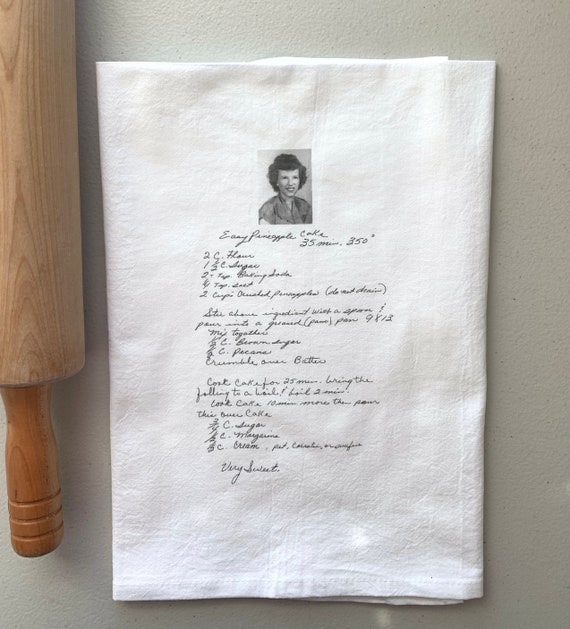 Easy Pineapple Cake
35 min. 350°
2 C. Flour
1 ½ C. Sugar
2 - tsp. Baking Soda
¼ Tsp. Salt
2 Cups Crushed Pineapples (do not drain)
Stir above ingredient with a spoon &
pour into a greased (pam) pan 9X13
Mix together
½ C. Brown sugar
½ C. Pecans
Crumble over Batter
Cook Cake for 25 min. bring the
following to a boil & boil 2 min.
Cook Cake 10 min more then pour
this over Cake
C. Sugar
½ C. Margarine
C. Cream, pet, or
Very Sweet.